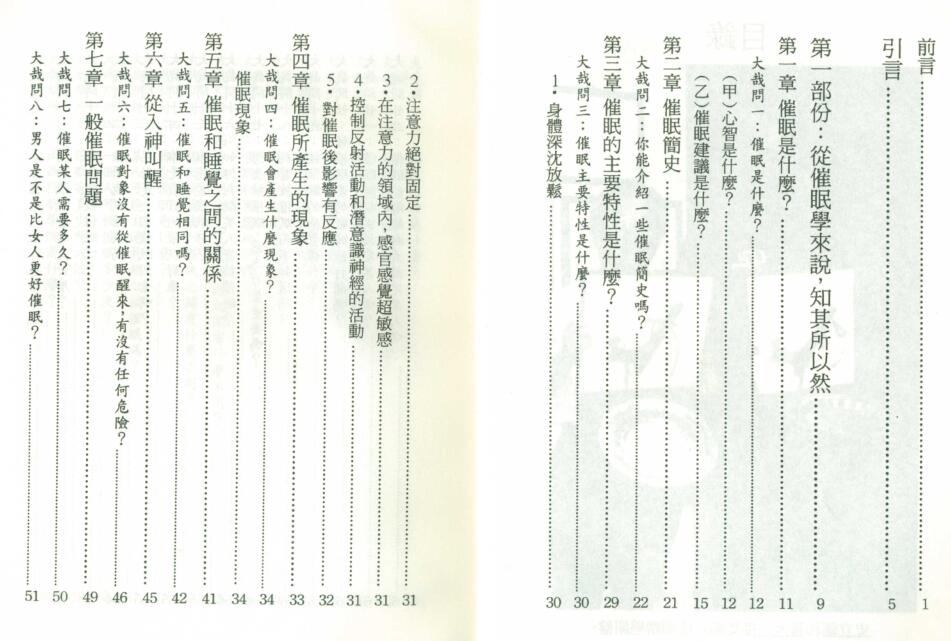 前言 1
引言 5
第一部份：從催眠學來說，知其所以然 9
第一章 催眠是什麼？ 11
大哉問一：催眠是什麼？ 12
（甲）心智是什麼？ 12
（乙）催眠建議是什麼？ 15
第二章 催眠簡史 21
大哉問二：你能介紹一些催眠簡史嗎？ 22
第三章 催眠的主要特性是什麼？ 29
大哉問三：催眠主要特性是什麼？ 30
1．身體深沈放鬆 30
2．注意力絕對固定 31
3．在注意力的領域內，感官感覺超敏感 31
4．控制反射活動和潛意識神經的活動 31
5．對催眠後影響有反應 32
第四章 催眠所產生的現象 33
大哉問四：催眠會產生什麼現象？ 34
催眠現象 34
第五章 催眠和睡覺之間的關係 41
大哉問五：催眠和睡覺相同嗎？ 42
第六章 從入神叫醒 45
大哉問六：催眠對象沒有從催眠醒來，有沒有任何危險？ 46
第七章 一般催眠問題 49
大哉問七：催眠某人需要多久？ 50
大哉問八：男人是不是比女人更好催眠？ 51
目錄